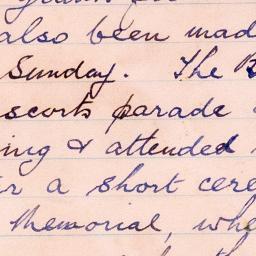 also been mad
Sunday. The B
scorts parade
ing & attended
r a short cere
Memorial, whe